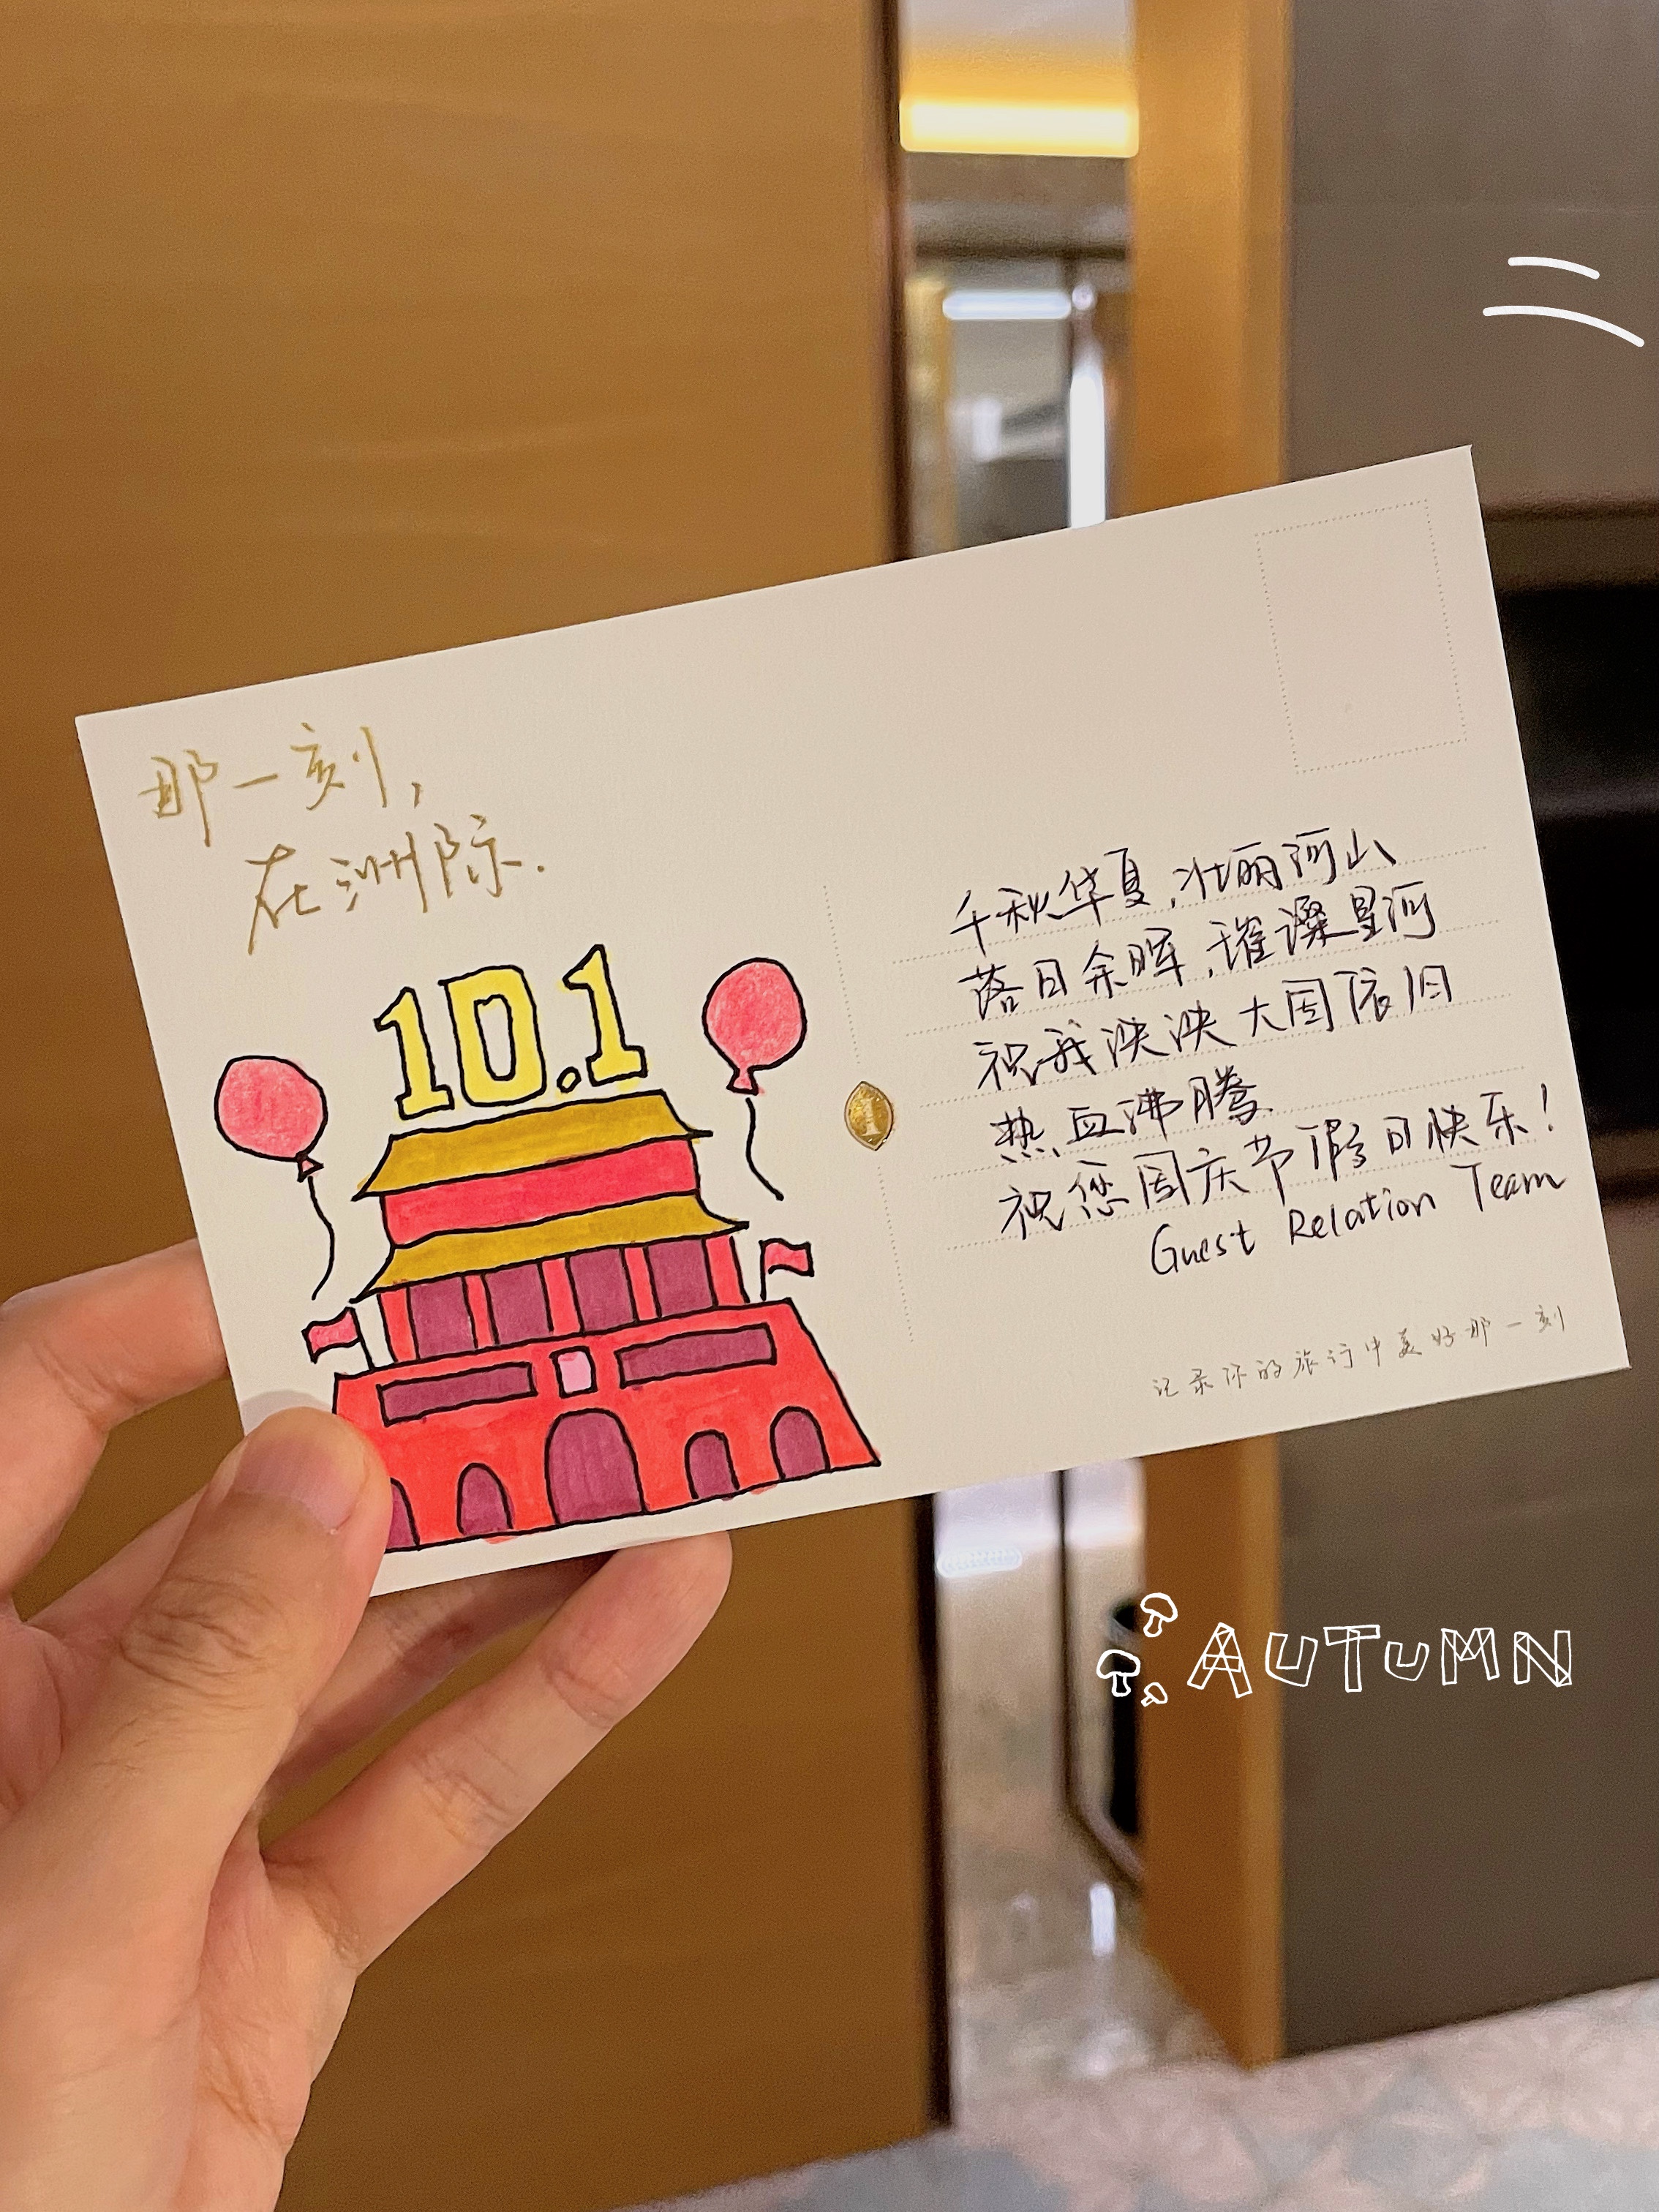 那一刻,
在洲际.
10.1
千秋华夏,壮丽河山
落日余晖,璀璨星河
祝我泱泱大国依旧
热血沸腾
祝您国庆节假日快乐!
Guest Relation Team
记录你的旅行中美好那一刻
AUTUMN